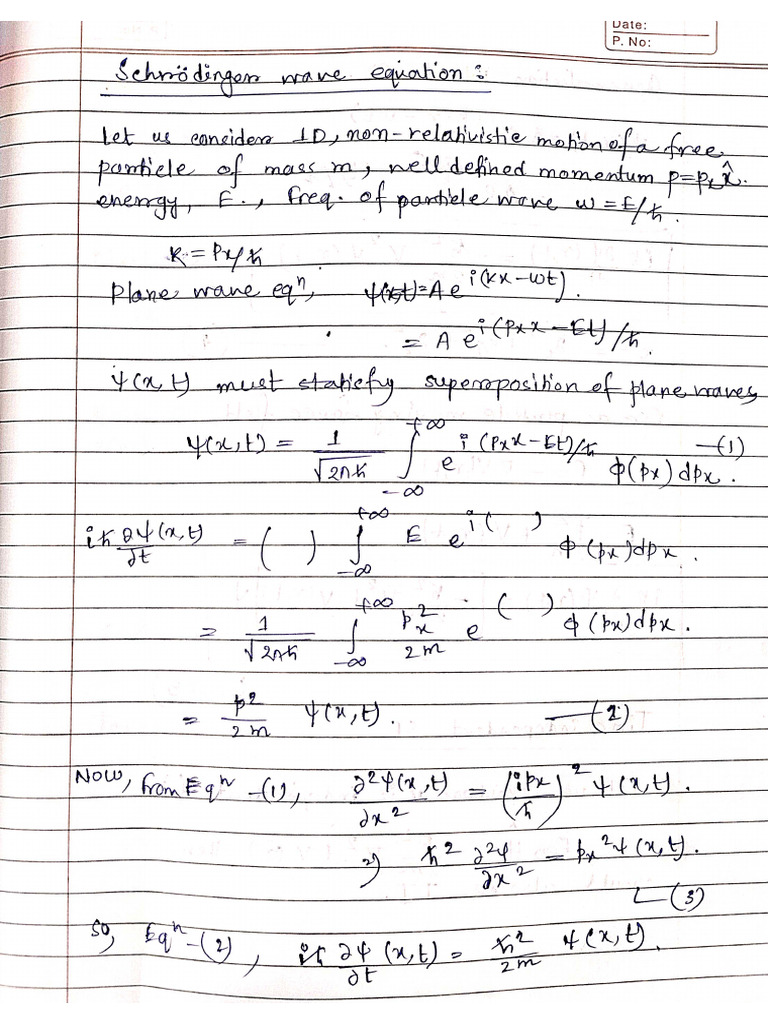 Date:
P. No:
Schrödinger wave equation:
Let us consider 1D, non-relativistic motion of a free
particle of mass m, well defined momentum p=pₓx̂.
energy, E., freq. of particle wave w = E/ħ.
K = Px/ħ
Plane wave eqⁿ, ψ(x,t)=A e^{i(kx-wt)}.
= A e^{i(Pxx - Et)/ħ}.
ψ(x,t) must statisfy superposition of plane waves
ψ(x,t) = 1/√2πħ ∫_{-∞}^{+∞} e^{i(Pxx-Et)/ħ} φ(px)dpx. —(1)
iħ ∂ψ(x,t)/∂t = ( ) ∫_{-∞}^{+∞} E e^{i( )} φ(px)dpx.
= 1/√2πħ ∫_{-∞}^{+∞} px²/2m e^{( )} φ(px)dpx.
= p²/2m ψ(x,t). —(2)
Now, from Eqⁿ-(1), ∂²ψ(x,t)/∂x² = (ipx/ħ)² ψ(x,t).
⇒ ħ² ∂²ψ/∂x² = px²ψ(x,t).
(3)
So, Eqⁿ-(2), iħ ∂ψ(x,t)/∂t = ħ²/2m ψ(x,t).